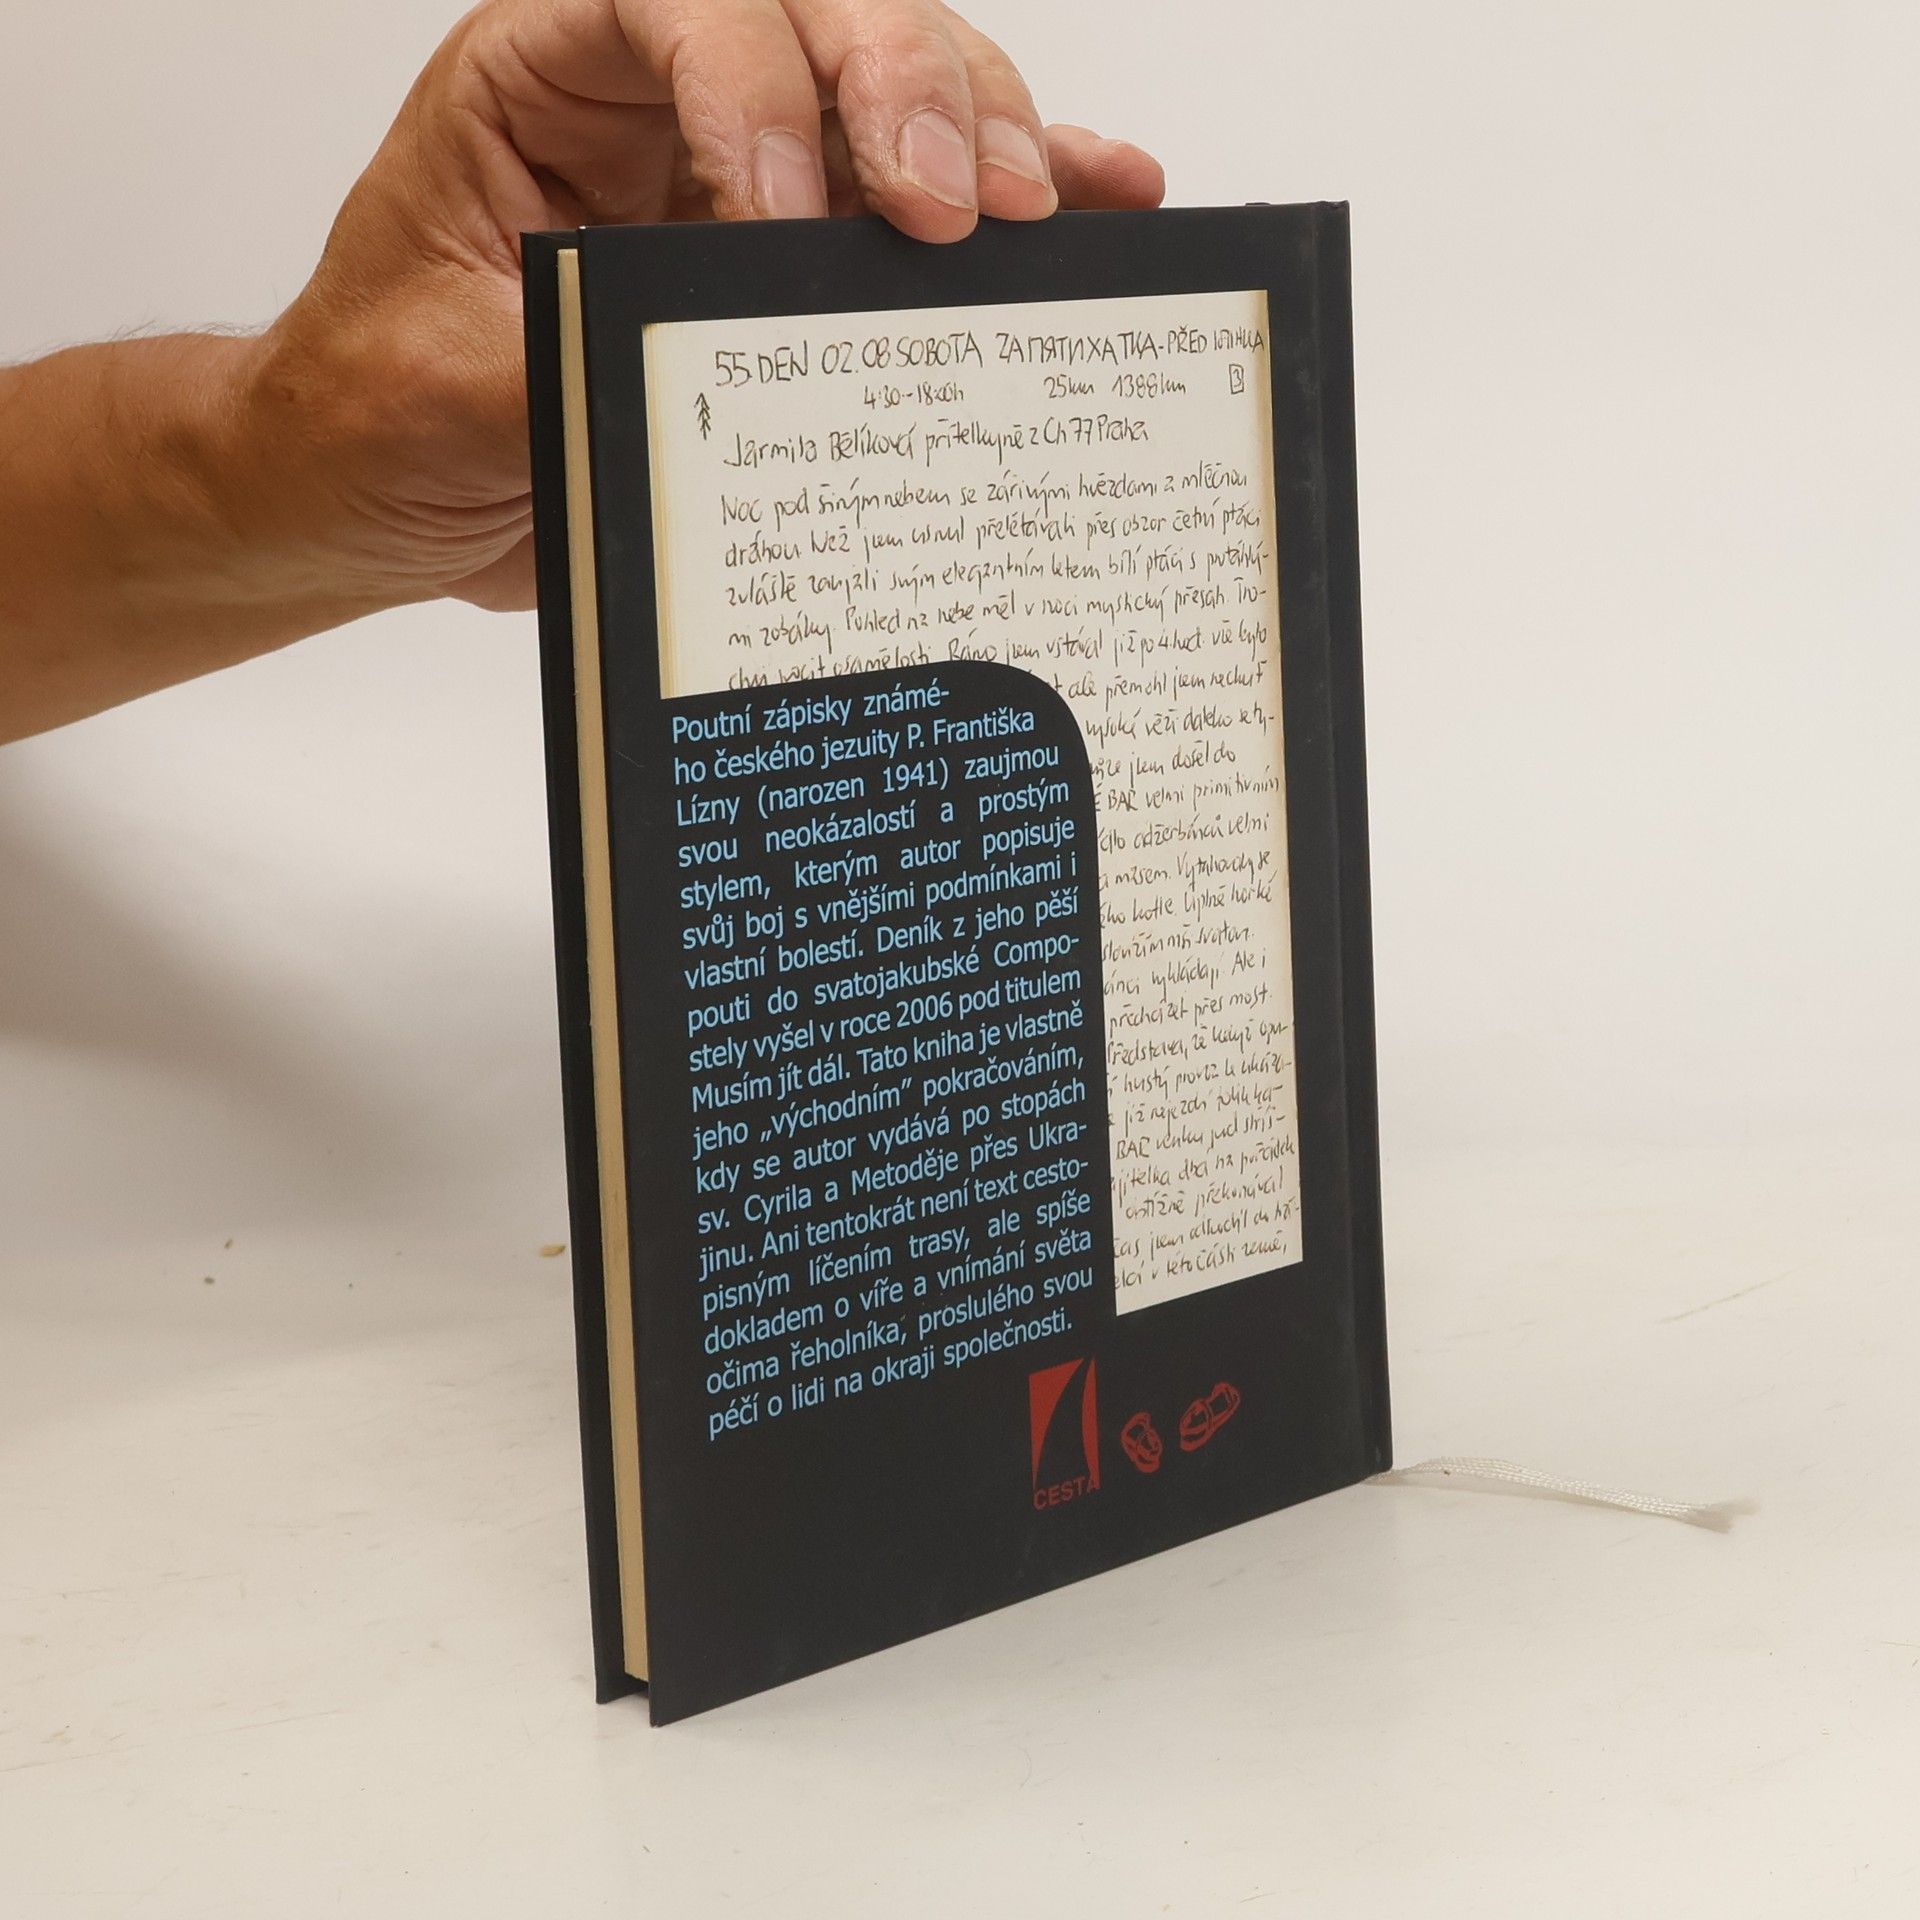 55. DEN 02.08 SOBOTA ZAПЯТИХАТКА - PŘED
4:30 - 18:00h 25km 1388km 3
Jarmila Bělíková přítelkyně z Ch 77 Praha
Noc pod širým nebem se zářivými hvězdami a mléčnou
dráhou. Než jsem usnul přelétávali přes obzor četní ptáci
zvláště zaujali svým elegantním letem bílí ptáci s
mi zobáky. Pohled na nebe měl v noci mystický přesah. Tro-
chu pocit osamělosti. Ráno jsem vstával již po 4. hod. vše bylo
ale přemohl jsem nechuť
vysoké věži daleko
jsem došel do
BAR velmi primitivním
velmi
masem.
kotle. Úplně horké
vykládají. Ale i
přecházet přes most.
Představa, že když
hustý provoz
již
BAR venku pod
dbá na pořádek
obtížně překonával
jsem
v této části země,
Poutní zápisky známé-
ho českého jezuity P. Františka
Lízny (narozen 1941) zaujmou
svou neokázalostí a prostým
stylem, kterým autor popisuje
svůj boj s vnějšími podmínkami i
vlastní bolestí. Deník z jeho pěší
pouti do svatojakubské Compo-
stely vyšel v roce 2006 pod titulem
Musím jít dál. Tato kniha je vlastně
jeho „východním" pokračováním,
kdy se autor vydává po stopách
sv. Cyrila a Metoděje přes Ukra-
jinu. Ani tentokrát není text cesto-
pisným líčením trasy, ale spíše
dokladem o víře a vnímání světa
očima řeholníka, proslulého svou
péčí o lidi na okraji společnosti.
CESTA